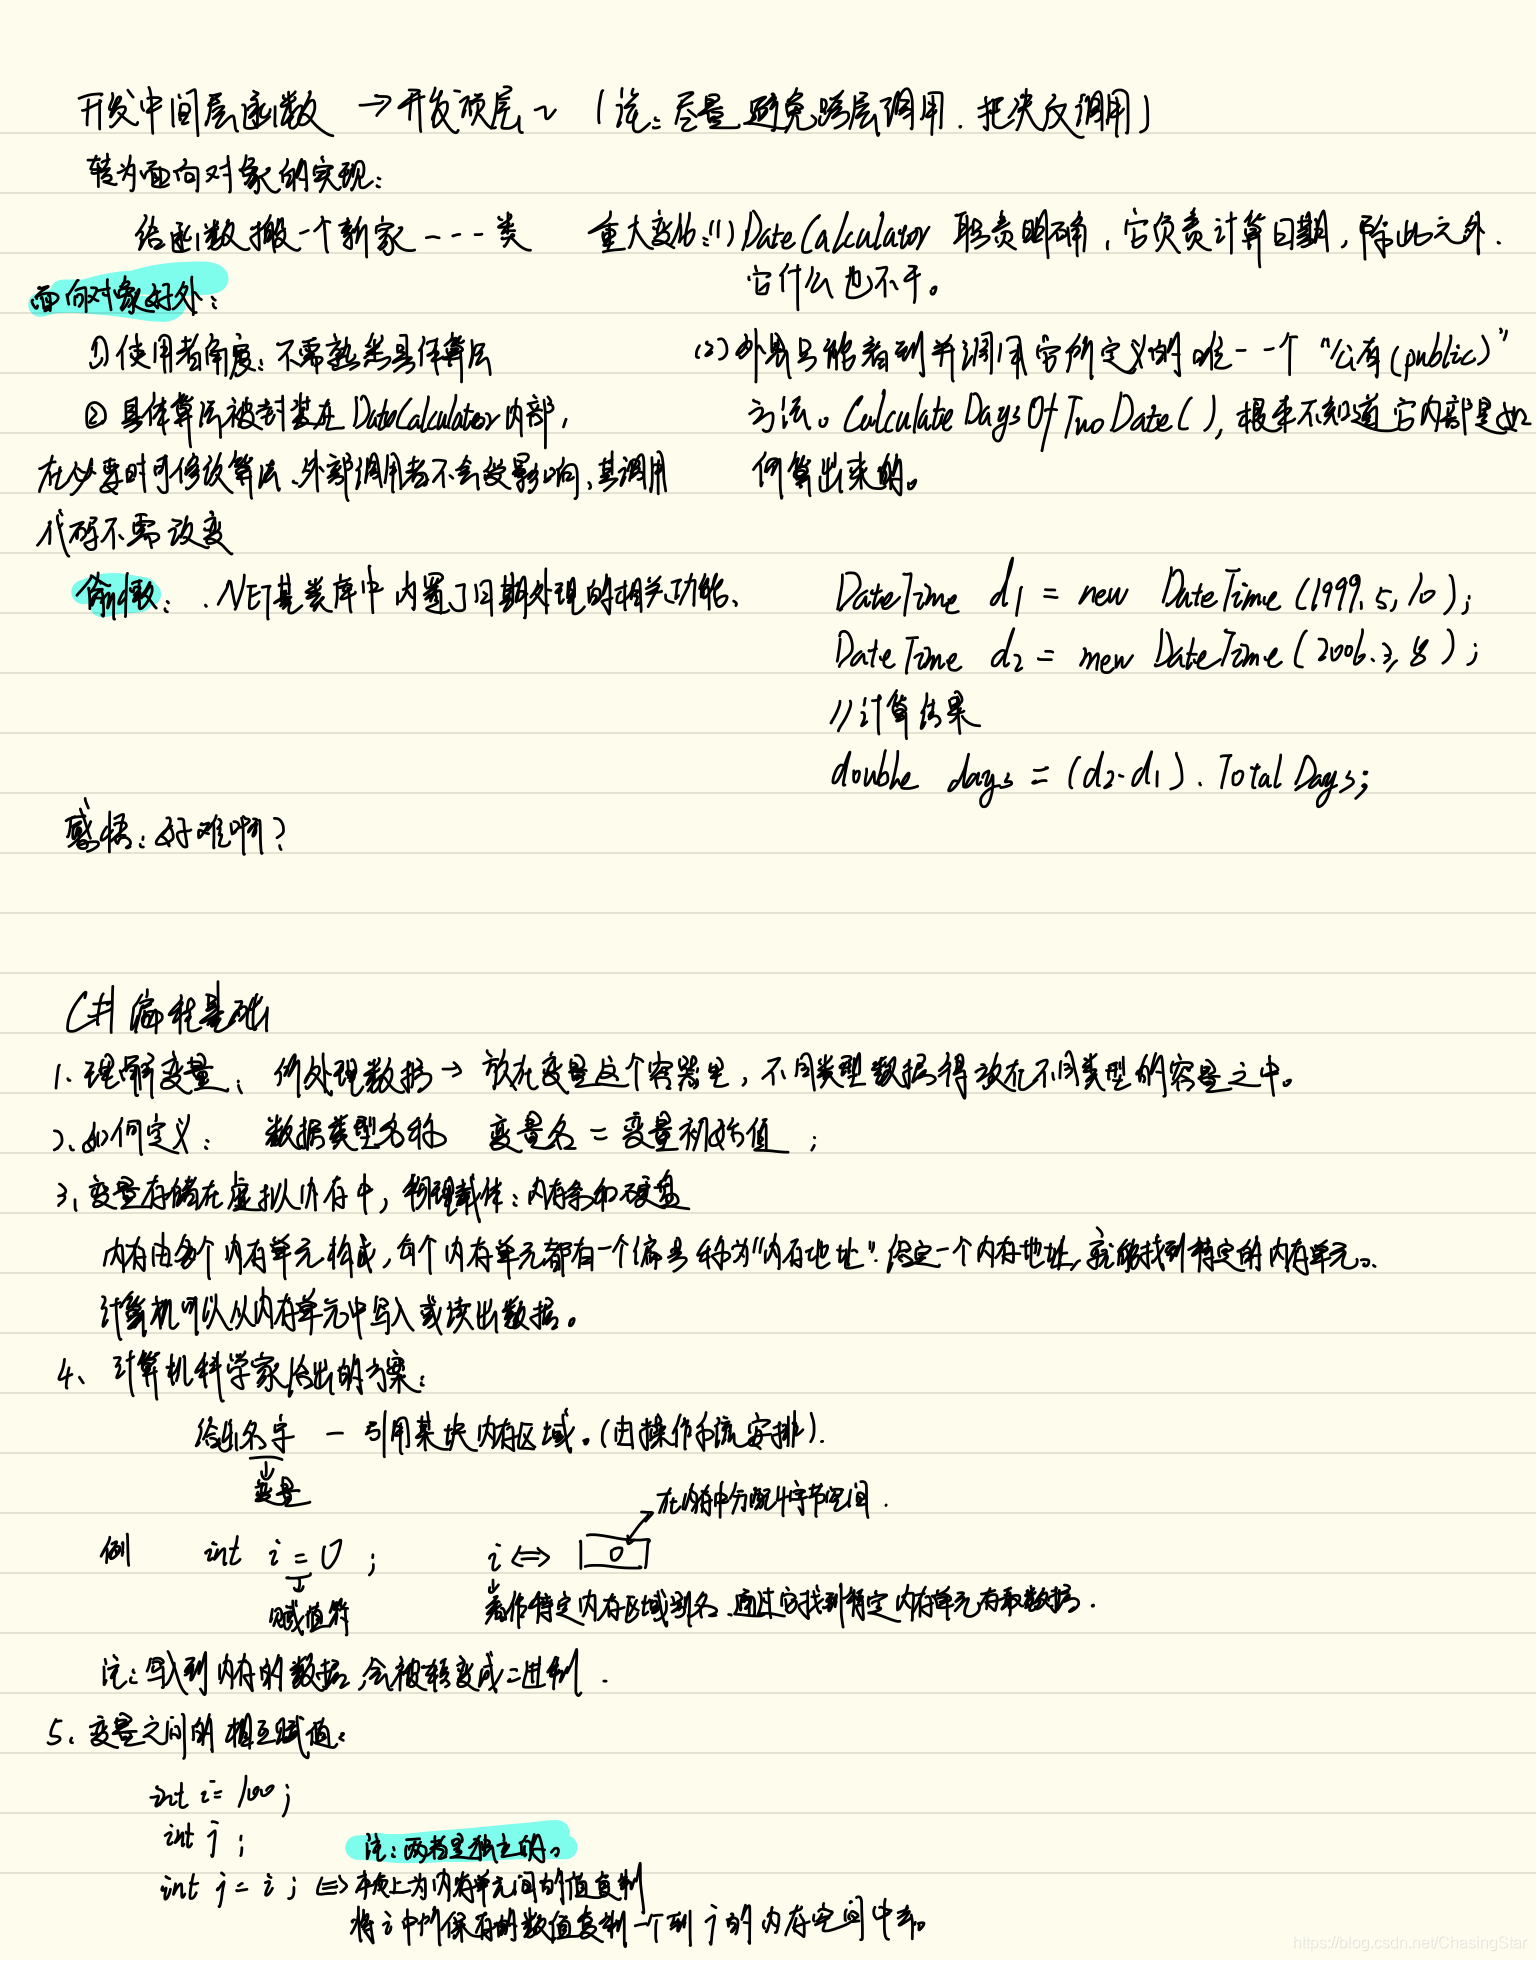 开发中间层函数 →开发顶层~ (注:尽量避免跨层调用.把决反调用)
转为面向对象的实现:
给函数搬一个新家----类
重大变化:(1) DateCalculator 职责明确,它负责计算日期,除此之外.
它什么也不干。
面向对象好处:
①使用者角度:不需熟悉具体算法
(2)外界只能看到并调用它所定义的唯一一个“公有(public)”
②具体算法被封装在DateCalculator内部,
方法。CalculateDaysOfTwoDate(),根本不知道它内部是如
在必要时可修改算法、外部调用者不会受影响,其调用
何算出来的。
代码不需改变
偷懒:.NET基类库中内置了日期处理的相关功能、
DateTime d1 = new DateTime(1999.5,10);
DateTime d2 = new DateTime(2006.3,8);
//计算结果
double days = (d2-d1).TotalDays;
感悟:好难啊?
C#编程基础
1.理解变量:所处理数据→放在变量这个容器里,不同类型数据得放在不同类型的容量之中。
2.如何定义: 数据类型名称 变量名=变量初始值;
3、变量存储在虚拟内存中,物理载体:内存条和硬盘
内存由多个内存单元构成,每个内存单元都有一个编号称为“内存地址”.给定一个内存地址,就能找到特定的内存单元。
计算机可以从内存单元中写入或读出数据。
4、计算机科学家给出的方案:
给出名字 — 引用某块内存区域。(由操作系统安排).
变量
在内存中分配4字节空间.
例 int i=0; i⇔ 0
赋值符
看作特定内存区域别名.通过它找到特定内存单元存取数据.
注:写入到内存的数据,会被转变成二进制.
5、变量之间的相互赋值:
int i=100;
int j;
注:两者是独立的。
int j=i; ⇔本质上为内存单元间的值复制
将i中所保存的数值复制一个到j的内存空间中去。
https://blog.csdn.net/ChasingStar